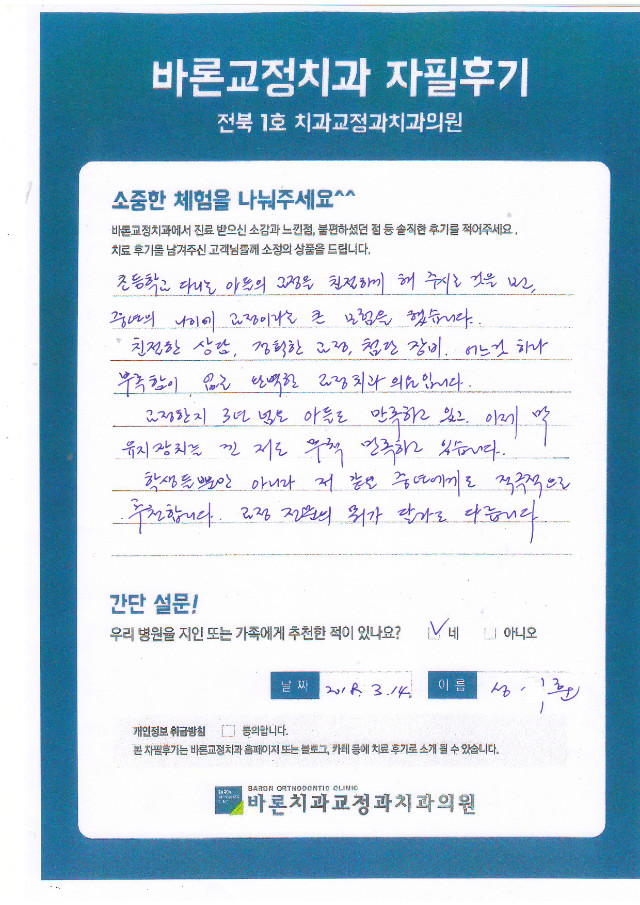 바론교정치과 자필후기
전북 1호 치과교정과치과의원
소중한 체험을 나눠주세요^^
바론교정치과에서 진료 받으신 소감과 느낀점, 불편하셨던 점 등 솔직한 후기를 적어주세요.
치료 후기를 남겨주신 고객님들께 소정의 상품을 드립니다.
초등학교 다니는 아들의 교정을 친절하게 해 주시는 것을 보고,
중년의 나이에 교정이라는 큰 모험을 했습니다.
친절한 상담, 정확한 교정, 첨단 장비. 어느것 하나
부족함이 없는 완벽한 교정치과 의원입니다.
교정한지 3년 넘은 아들도 만족하고 있고. 이제 막
유지장치를 낀 저도 무척 만족하고 있습니다.
학생들뿐만 아니라 저 같은 중년에게도 적극적으로
추천합니다. 교정 전문의 뭐가 달라도 다릅니다
간단 설문!
우리 병원을 지인 또는 가족에게 추천한 적이 있나요? 네 아니오
날 짜 2018. 3. 14. 이 름
개인정보 취급방침 동의합니다.
본 자필후기는 바론교정치과 홈페이지 또는 블로그, 카페 등에 치료 후기로 소개 될 수 있습니다.
BARON ORTHODONTIC CLINIC
바론치과교정과치과의원